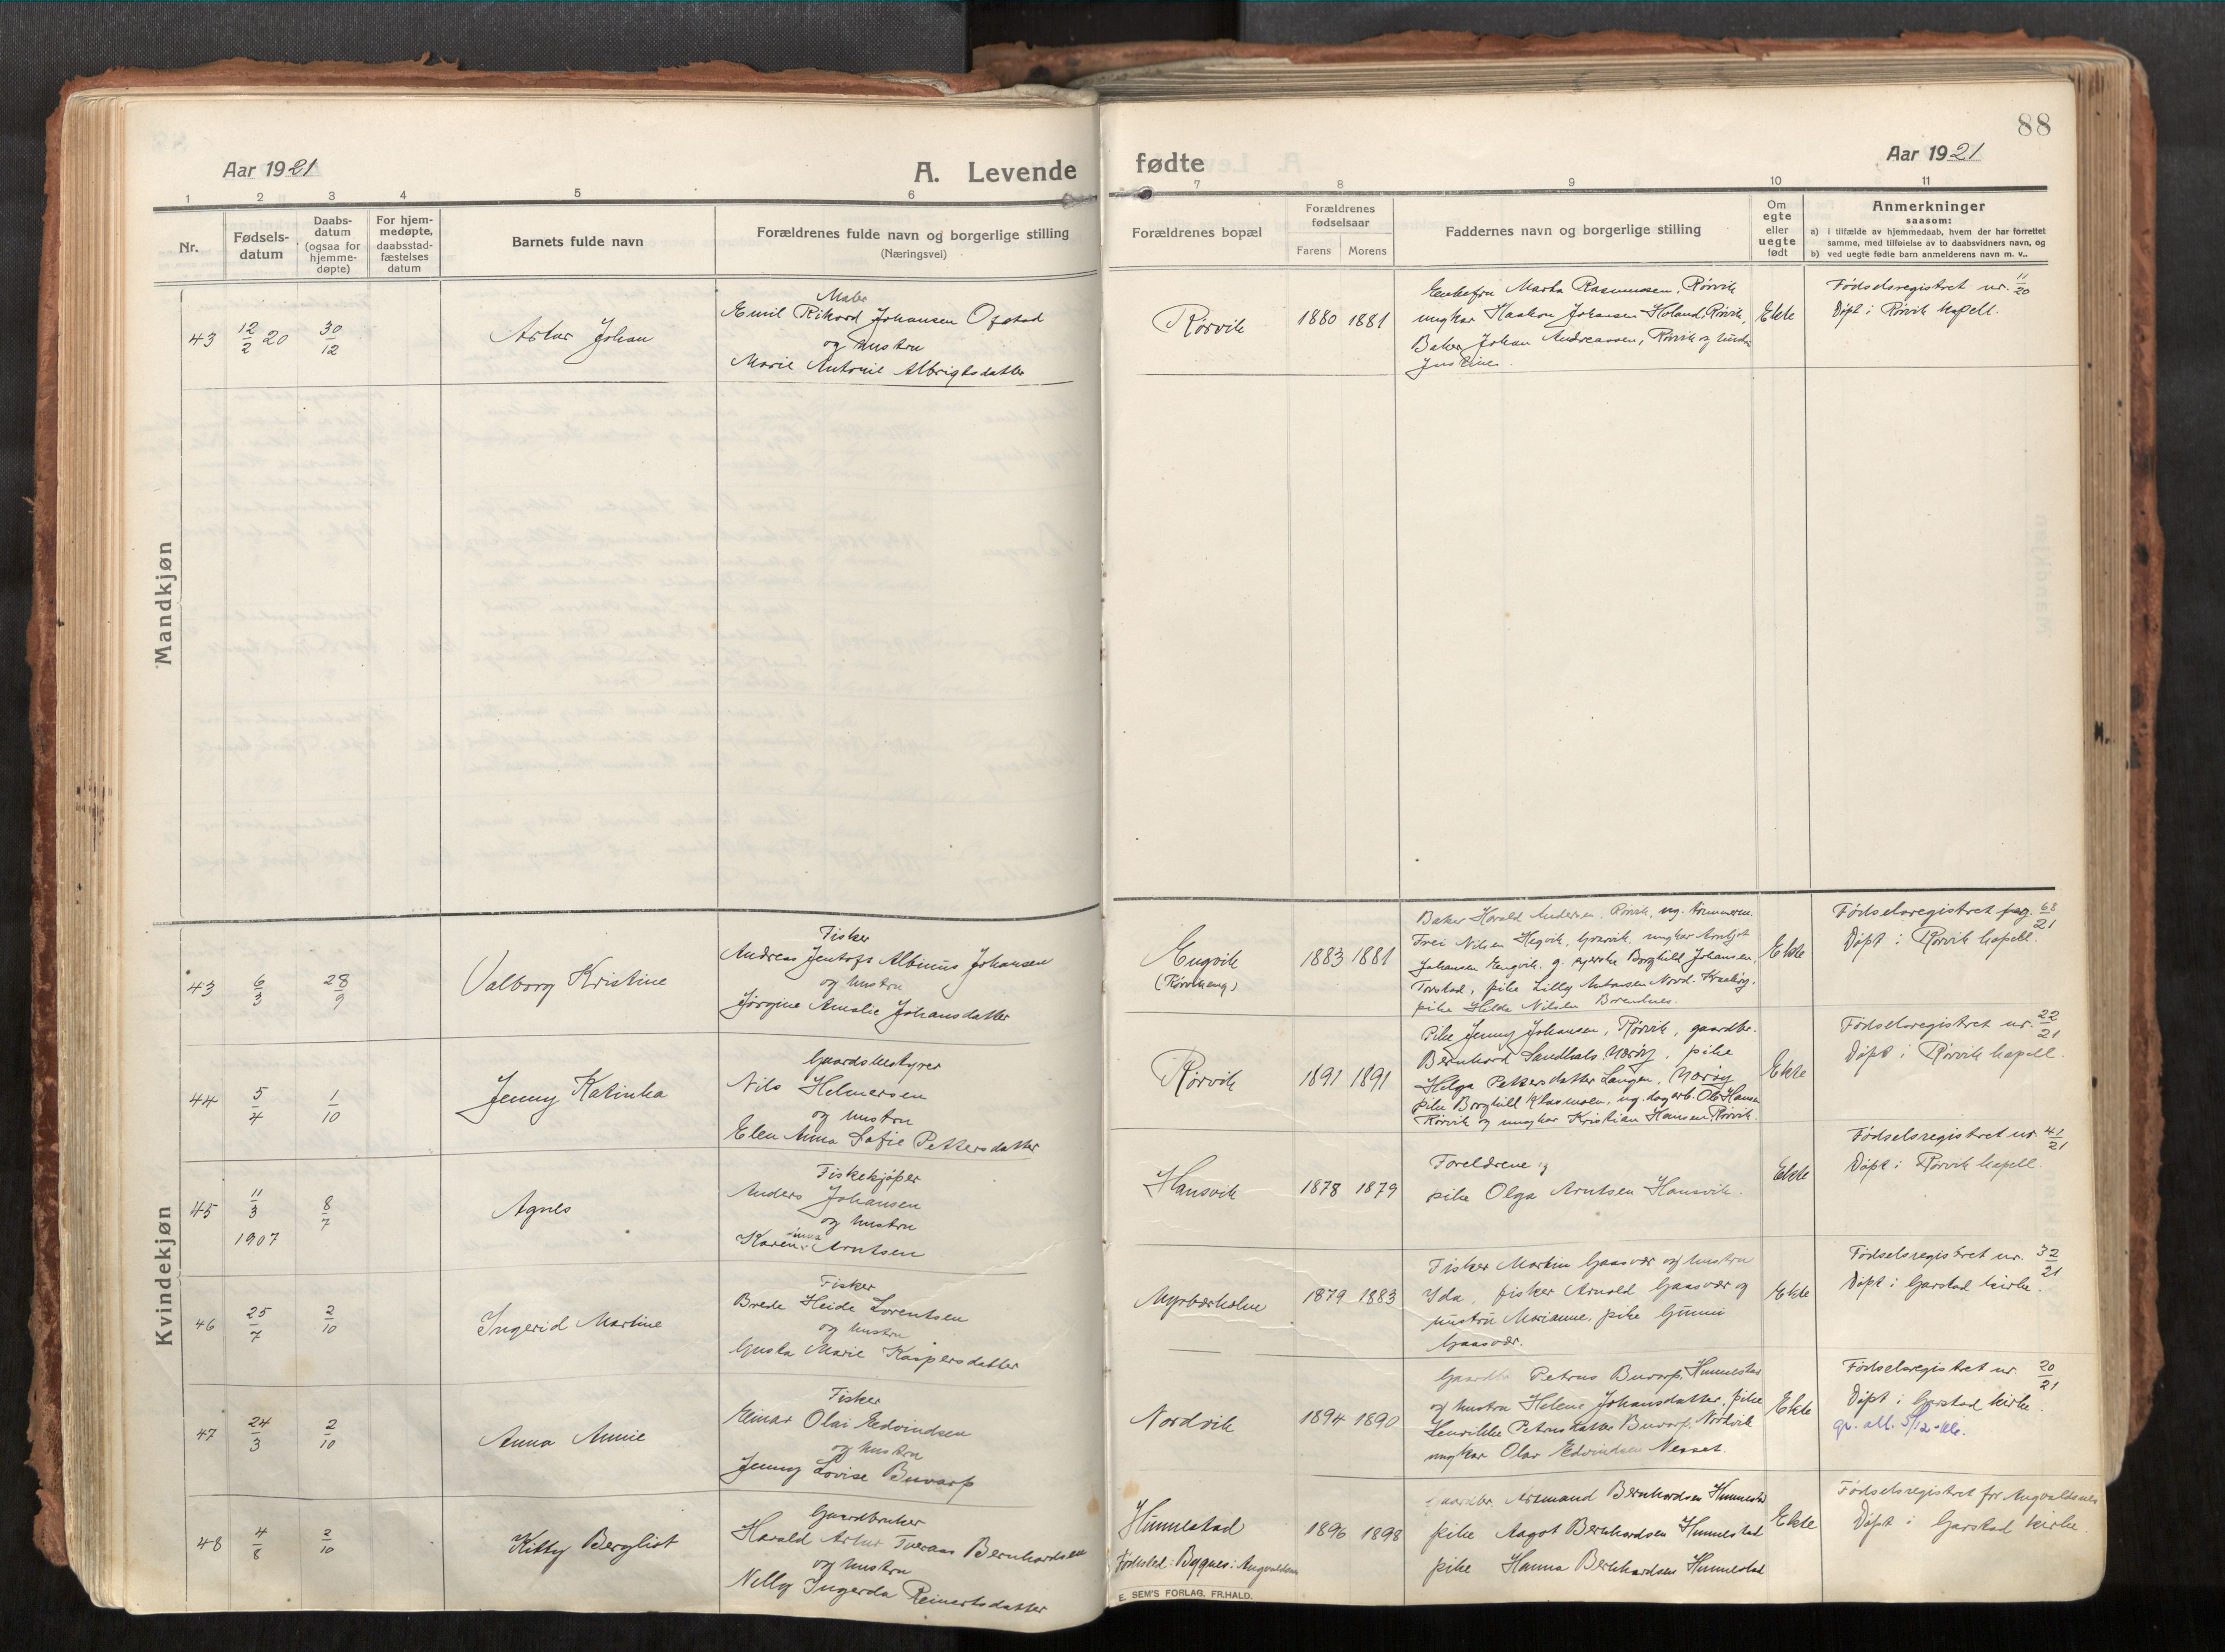 88
Aar 1921
A. Levende
fødte
Aar 1921
1 2 3 4 5 6 7 8 9 10 11
Nr.
Fødsels-
datum
Daabs-
datum
(ogsaa for
hjemme-
døpte)
For hjem-
medøpte,
daabsstad-
fæstelses
datum
Barnets fulde navn
Forældrenes fulde navn og borgerlige stilling
(Næringsvei)
Forældrenes bopæl
Forældrenes
fødselsaar
Farens Morens
Faddernes navn og borgerlige stilling
Om
egte
eller
uegte
født
Anmerkninger
saasom:
a) i tilfælde av hjemmedaab, hvem der har forrettet
samme, med tilføielse av to daabsvidners navn, og
b) ved uegte fødte barn anmelderens navn m. v..
Mandkjøn
43
12/2 20
30/12
Artur Johan
Maler
Emil Rikard Johansen Ofstad
og hustru
Marie Antonie Albrigtsdatter
Rørvik
1880 1881
Enkefru Marta Rasmussen, Rørvik
ungkar Haakon Johansen Holand, Rørvik,
Baker Johan Andreassen, Rørvik og hustru
Justine.
Ekte
Fødselsregistret nr. 11/20
Døpt i Rørvik kapell.
Kvindekjøn
43
6/3
28/9
Valborg Kristine
Fisker
Andreas Jentoft Albinus Johansen
og hustru
Jørgine Amalie Johansdatter
Engvik
(Rørvikeng)
1883 1881
Baker Harald Andersen, Rørvik, ug.
Frei Nilsen Hegvik, ungkar Arnljot
Johansen Engvik, g. Borghild Johansen,
Torstad, pike Lilly Antonsen Nord.
pike Hilda Nilsen
Ekte
Fødselsregistret pag. 68/21
Døpt i Rørvik kapell.
44
5/4
1/10
Jenny Katinka
Gaardsbestyrer
Nils Helmersen
og hustru
Elen Anna Sofie Pettersdatter
Rørvik
1891 1891
Pike Jenny Johansen, Rørvik, gaardbr.
Bernhard Sandhals, Nærøy, pike
Helga Pettersdatter Langen, Nærøy
pike Borghild Klasmoen, ug. dagarb. Ole Hansen
Rørvik og ungkar Kristian Hansen, Rørvik.
Ekte
Fødselsregistret nr. 22/21
Døpt i Rørvik kapell.
45
11/3
1907
8/7
Agnes
Fiskekjøper
Anders Johansen
og hustru
Karen Arntsen
Hansvik
1878 1879
Foreldrene og
pike Olga Arntsen Hansvik.
Ekte
Fødselsregistret nr. 41/21
Døpt i Rørvik kapell.
46
25/7
2/10
Ingerid Martine
Fisker
Brede Heide Lorentsen
og hustru
Gusta Marie Kaspersdatter
Myrbærholm
1879 1883
Fisker Martin Gaasvær og hustru
Ida, fisker Arnold Gaasvær og
hustru Marianne, pike Gunni
Gaasvær.
Ekte
Fødselsregistret nr. 32/21
Døpt i Garstad kirke.
47
24/3
2/10
Anna Annie
Fisker
Einar Olai Edvindsen
og hustru
Jenny Lovise Buvarp
Nordvik
1894 1890
Gaardbr. Petrus Buvarp, Hunnestad
og hustru Helene Johansdatter, pike
Henrikke Petrusdatter Buvarp, Nordvik
ungkar Olav Edvindsen Nesset.
Ekte
Fødselsregistret nr. 20/21
Døpt i Garstad kirke.
48
4/8
2/10
Kitty Bergliot
Gaardbruker
Harald Artur Tveraas Bernhardsen
og hustru
Nelly Ingerda Reinertsdatter
Hunnestad
Fødested: Bygnes i Augvaldsnes
1896 1898
Gaardbr. Armand Bernhardsen Hunnestad
pike Aagot Bernhardsen Hunnestad
pike Hanna Bernhardsen Hunnestad
Ekte
Fødselsregistret for Augvaldsnes
Døpt i Garstad kirke.
E. SEM'S FORLAG, FR.HALD.